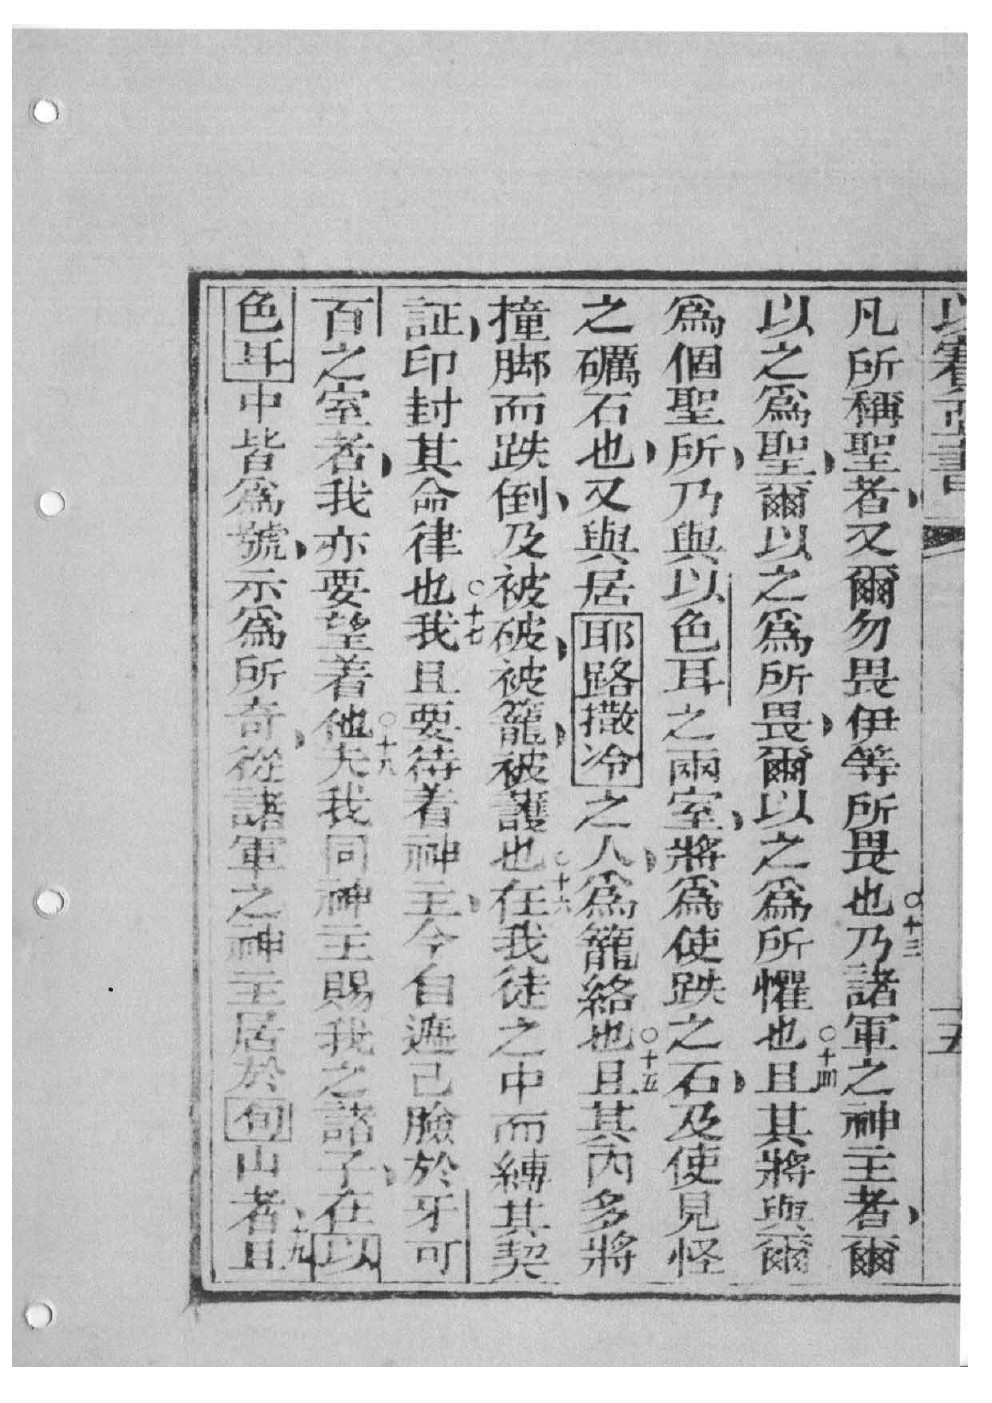 以賽亞書 十五
凡所稱聖者又爾勿畏伊等所畏也○十三乃諸軍之神主者爾
以之為聖爾以之為所畏爾以之為所懼也○十四且其將與爾
為個聖所乃與以色耳之兩室將為使跌之石及使見怪
之礪石也又與居耶路撒冷之人為籠絡也○十五且其內多將
撞脚而跌倒及被破被籠被護也○十六在我徒之中而縛其契
証印封其命律也○十七我且要待着神主今自遮己臉於牙可
百之室者我亦要望着他○十八夫我同神主賜我之諸子在以
色耳中皆為號示為所奇從諸軍之神主居於旬山者○十九且